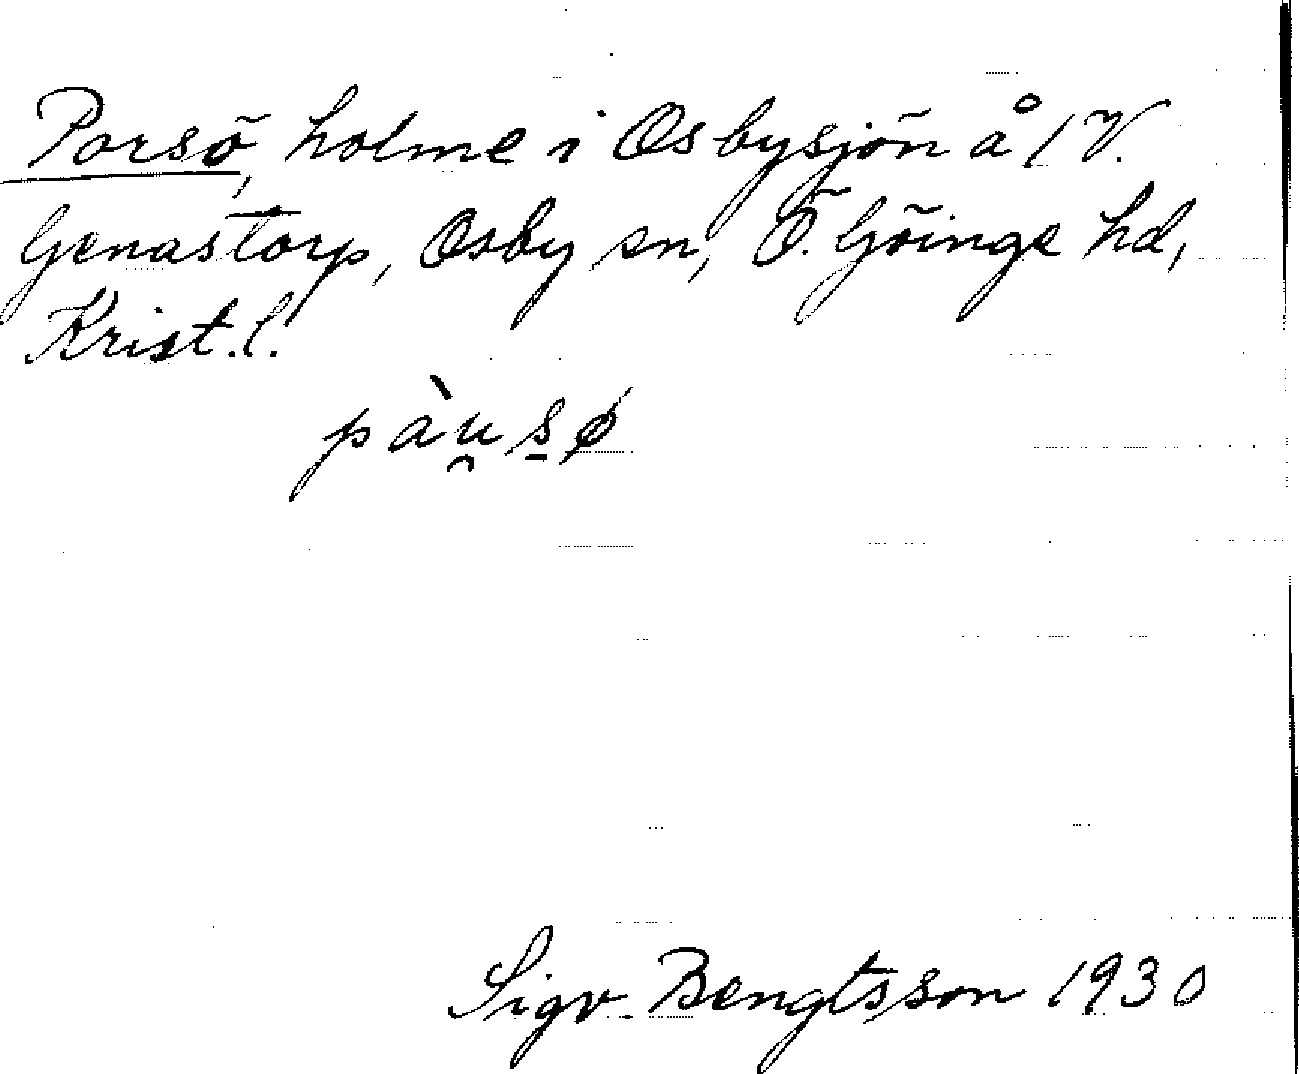 Porsö, holme i Osbysjön å 1 V.
Genastorp, Osby sn, Ö. Göinge hd,
Krist. l.
pàu̯s̱ø
Sigv. Bengtsson 1930